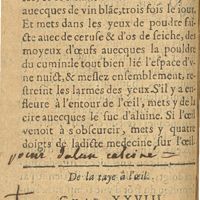 auecques de vin blāc, trois fois le iour.
Et mets dans les yeux de poudre fai-
cte auec de ceruse & d'os de seiche, des
moyeux d'œufs auecques la pouldre
du cumin: le tout bien lié l'espace d'v-
ne nuict, & meslez ensemblement, re-
streint les larmes des yeux. S'il y a en-
fleure à l'entour de l'œil, mets y de la
cire auecques le suc d'aluine. Si l'œil
venoit à s'obscurcir, mets y quatre
doigts de ladicte medecine sur l'œil.
pour
De la taye à l'œil.
CHAP. XXVIII.